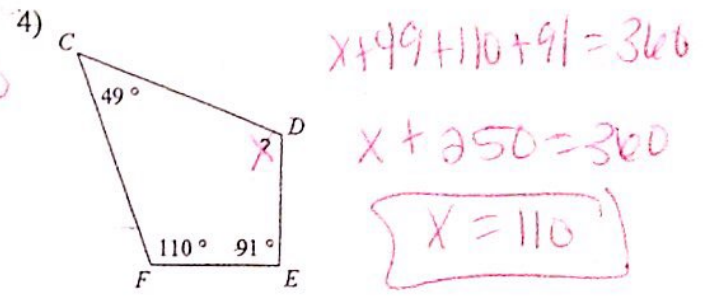 4)
C
49°
D
?
x
110°
91°
F
E
x+49+110+91=360
x+250=360
x=110